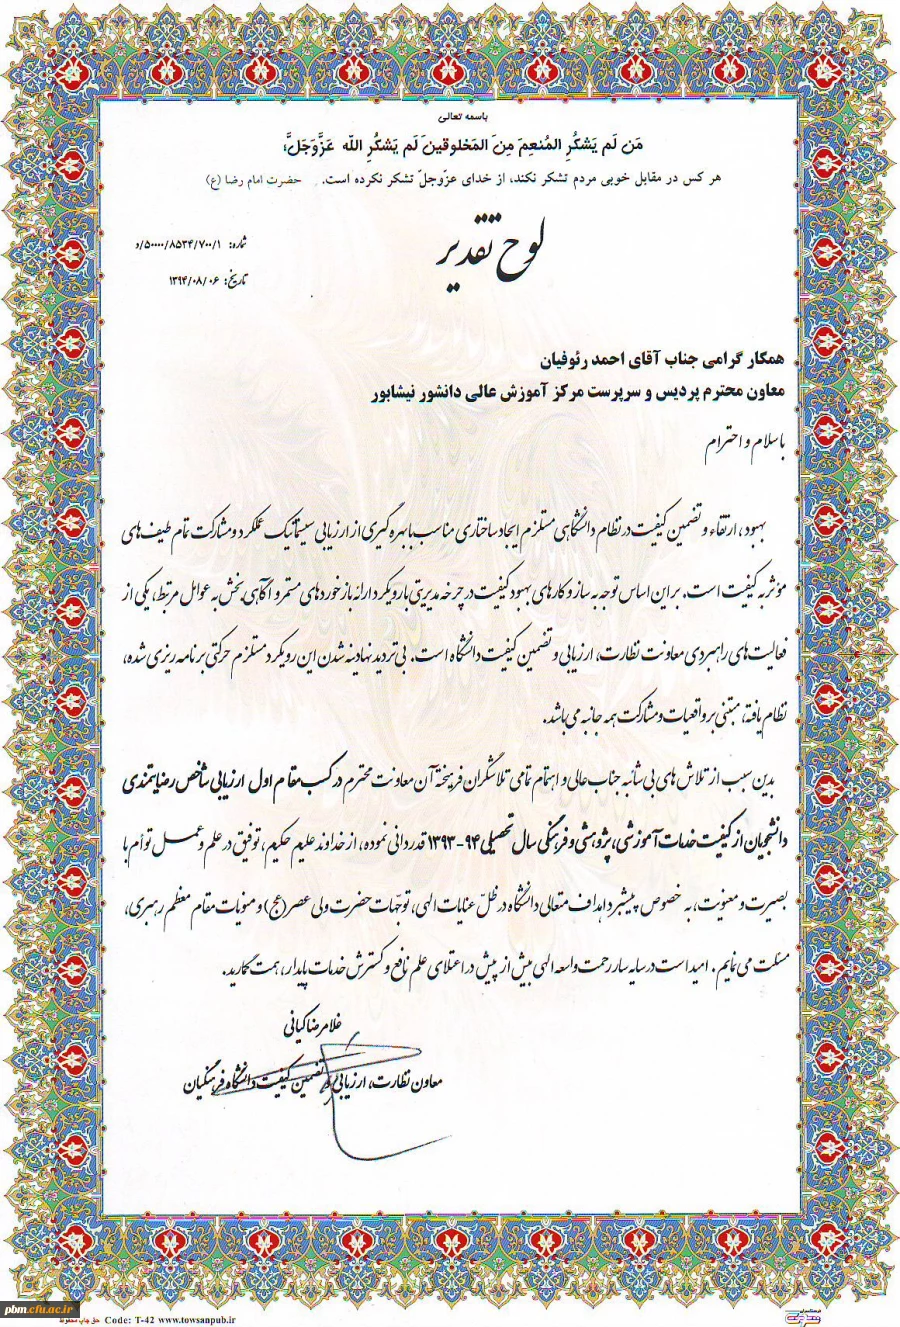 باسمه تعالی
مَن لَم یَشکُرِ المُنعِمَ مِنَ المَخلوقینَ لَم یَشکُرِ اللّه عَزَّوَجَلَّ؛
هر کس در مقابل خوبی مردم تشکر نکند، از خدای عزّوجلّ تشکر نکرده است. حضرت امام رضا (ع)
لوح تقدیر
شماره: ۵۰۰۰۰/۸۵۳۴/۷۰۰/۱/د
تاریخ: ۱۳۹۴/۰۸/۰۶
همکار گرامی جناب آقای احمد رئوفیان
معاون محترم پردیس و سرپرست مرکز آموزش عالی دانشور نیشابور
با سلام و احترام
بهبود، ارتقاء و تضمین کیفیت در نظام دانشگاهی مستلزم ایجاد ساختاری مناسب با بهره گیری از ارزیابی سیستماتیک عملکرد و مشارکت تمام طیف های
مؤثر به کیفیت است. بر این اساس توجه به ساز و کارهای بهبود کیفیت در چرخه مدیریتی با رویکرد ارائه بازخوردهای مستمر و آگاهی بخش به عوامل مرتبط، یکی از
فعالیت های راهبردی معاونت نظارت، ارزیابی و تضمین کیفیت دانشگاه است. بی تردید نهادینه شدن این رویکرد مستلزم حرکتی برنامه ریزی شده،
نظام یافته، مبتنی بر واقعیات و مشارکت همه جانبه می باشد.
بدین سبب از تلاش های بی شائبه جناب عالی و اهتمام تمامی تلاشگران فرهیخته آن معاونت محترم در کسب مقام اول ارزیابی شاخص رضایتمندی
دانشجویان از کیفیت خدمات آموزشی، پژوهشی و فرهنگی سال تحصیلی ۹۴-۱۳۹۳ قدردانی نموده، از خداوند علیم حکیم، توفیق در علم و عمل توأم با
بصیرت و معنویت، به خصوص پیشبرد اهداف متعالی دانشگاه در ظلّ عنایات الهی، توجّهات حضرت ولی عصر (عج) و منویات مقام معظم رهبری،
مسئلت می نمایم. امید است در سایه سار رحمت واسعه الهی بیش از پیش در اعتلای علم نافع و گسترش خدمات پایدار، همت گمارید.
غلامرضا کیانی
معاون نظارت، ارزیابی و تضمین کیفیت دانشگاه فرهنگیان
pbm.cfu.ac.ir
حق چاپ محفوظ Code: T-42 www.towsanpub.ir